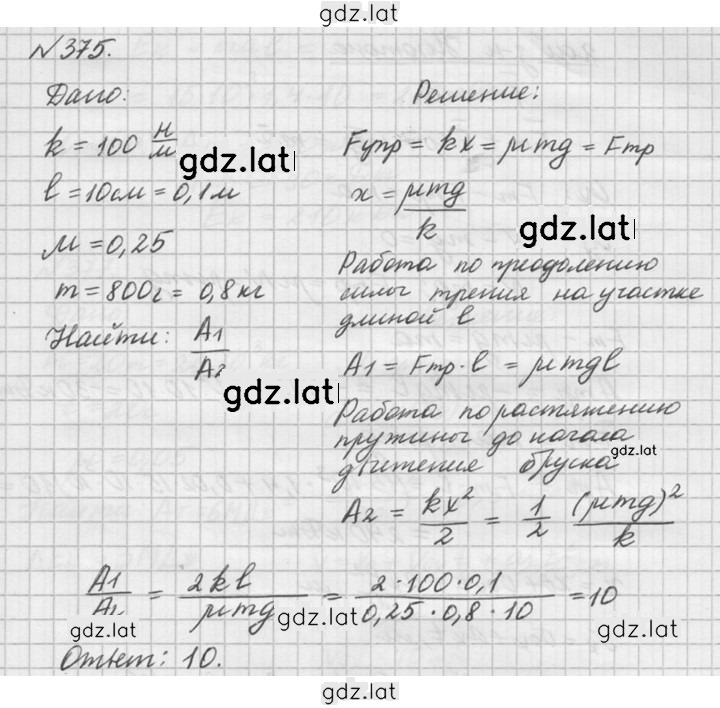 gdz.lat
№375.
Дано:
k = 100 Н/м
gdz.lat
l = 10см = 0,1м
μ = 0,25
m = 800г = 0,8кг
Найти: A1/A2
gdz.lat
Решение:
Fупр = kx = μmg = Fтр
x = μmg/k
gdz.lat
Работа по преодолению
силы трения на участке
длиной l
A1 = Fтр·l = μmgl
Работа по растяжению
пружины до начала
gdz.lat
движения бруска
A2 = kx²/2 = 1/2 (μmg)²/k
A1/A2 = 2kl/μmg = 2·100·0,1/0,25·0,8·10 = 10
gdz.lat
gdz.lat
gdz.lat
Ответ: 10.
gdz.lat